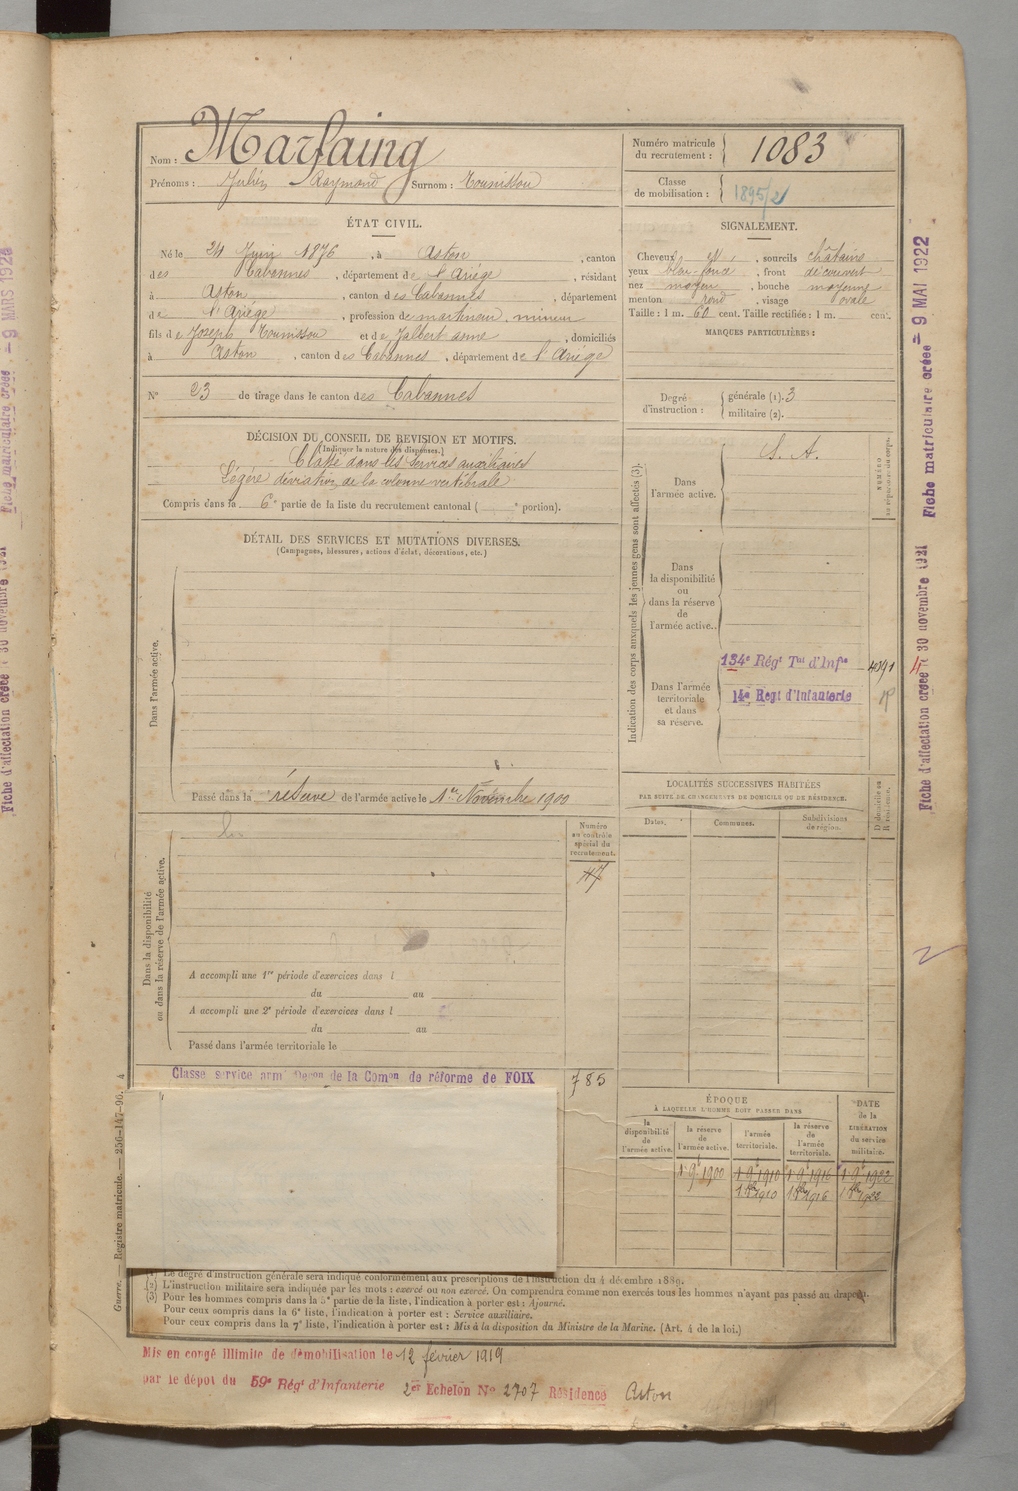 Nom : Marfaing
Prénoms : Julien Raymond Surnom : Tounissou
Numéro matricule du recrutement : 1083
Classe de mobilisation : 1895/2
ÉTAT CIVIL.
Né le 24 Juin 1876, à Aston, canton
des Cabannes, département de l'Ariége, résidant
à Aston, canton des Cabannes, département
de l'Ariége, profession de mineur
fils de Joseph Tounissou et de Jalbert anne, domiciliés
à Aston, canton des Cabannes, département de l'Ariége
No 23 de tirage dans le canton des Cabannes
SIGNALEMENT.
Cheveux et, sourcils châtains
yeux bleu foncé, front découvert
nez moyen, bouche moyenne
menton rond, visage ovale
Taille : 1 m. 60 cent. Taille rectifiée : 1 m. cent.
MARQUES PARTICULIÈRES :
Degré d'instruction : générale (1). 3
militaire (2).
DÉCISION DU CONSEIL DE REVISION ET MOTIFS.
(Indiquer la nature des dispenses.)
Classé dans les services auxiliaires
Légère déviation de la colonne vertébrale
Compris dans la 6e partie de la liste du recrutement cantonal ( e portion).
DÉTAIL DES SERVICES ET MUTATIONS DIVERSES.
(Campagnes, blessures, actions d'éclat, décorations, etc.)
Dans l'armée active.
Passé dans la réserve de l'armée active le 1er Novembre 1900
Indication des corps auxquels les jeunes gens sont affectés (3).
NUMÉRO
Dans l'armée active.
S. A.
Dans la disponibilité ou dans la réserve de l'armée active.
Dans l'armée territoriale et dans sa réserve.
134e Régt Tal d'Infie
14e Regt d'Infanterie
LOCALITÉS SUCCESSIVES HABITÉES
PAR SUITE DE CHANGEMENTS DE DOMICILE OU DE RÉSIDENCE.
Dates.
Communes.
Subdivisions de région.
D domicile ou R résidence.
Dans la disponibilité ou dans la réserve de l'armée active.
Numéro au contrôle spécial du recrutement.
47
A accompli une 1re période d'exercices dans l
du au
A accompli une 2e période d'exercices dans l
du au
Passé dans l'armée territoriale le
Classé service armé Decon de la Comon de réforme de FOIX
785
ÉPOQUE
À LAQUELLE L'HOMME DOIT PASSER DANS
la disponibilité de l'armée active.
la réserve de l'armée active.
l'armée territoriale.
la réserve de l'armée territoriale.
DATE de la LIBÉRATION du service militaire.
1 9e 1900 1 9e 1910 1 9e 1916 1 9e 1922
1 1910 1 1916 1 1922
(1) Le degré d'instruction générale sera indiqué conformément aux prescriptions de l'instruction du 4 décembre 1889.
(2) L'instruction militaire sera indiquée par les mots : exercé ou non exercé. On comprendra comme non exercés tous les hommes n'ayant pas passé au drapeau.
(3) Pour les hommes compris dans la 5e partie de la liste, l'indication à porter est : Ajourné.
Pour ceux compris dans la 6e liste, l'indication à porter est : Service auxiliaire.
Pour ceux compris dans la 7e liste, l'indication à porter est : Mis à la disposition du Ministre de la Marine. (Art. 4 de la loi.)
Mis en congé illimité de démobilisation le 12 février 1919
par le dépôt du 59e Régt d'Infanterie 2e Echelon No 2707 Résidence Aston
Guerre. — Registre matricule. — 256-147-96. 4
Fiche matriculaire créée = 9 MAI 1922
Fiche d'affectation créée le 30 novembre 1921
Fiche matriculaire créée = 9 MARS
Fiche d'affectation créée le 30 novembre 1921